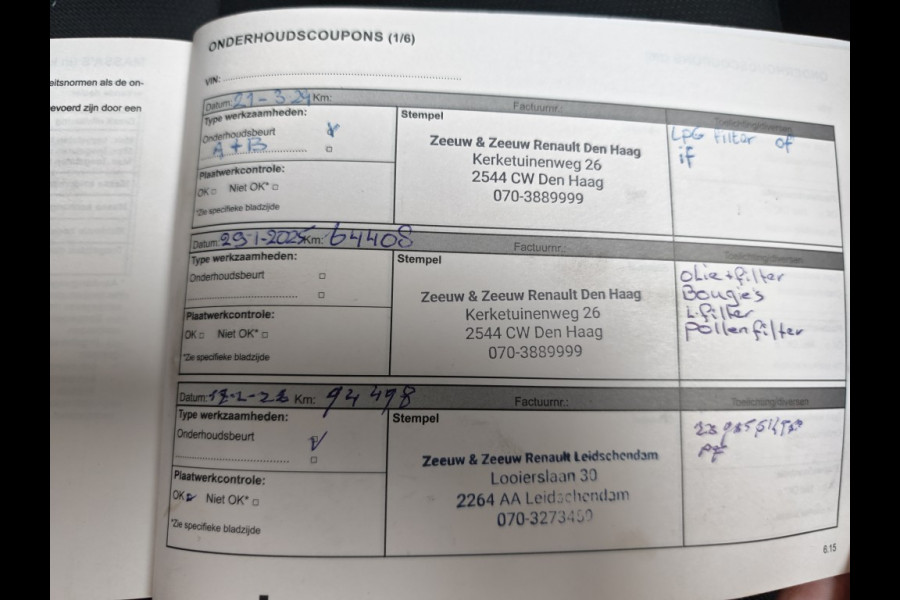 ONDERHOUDSCOUPONS (1/6)
eitsnormen als de on-
evoerd zijn door een
VIN:
Datum: 21-3-24 Km: Factuurnr.: Toelichting/diversen
Type werkzaamheden:
Onderhoudsbeurt
A + B
Plaatwerkcontrole:
OK Niet OK*
*Zie specifieke bladzijde
Stempel
Zeeuw & Zeeuw Renault Den Haag
Kerketuinenweg 26
2544 CW Den Haag
070-3889999
LPG filter of
if
Datum: 29-1-2025 Km: 64408 Factuurnr.: Toelichting/diversen
Type werkzaamheden:
Onderhoudsbeurt
Plaatwerkcontrole:
OK Niet OK*
*Zie specifieke bladzijde
Stempel
Zeeuw & Zeeuw Renault Den Haag
Kerketuinenweg 26
2544 CW Den Haag
070-3889999
olie + filter
Bougies
L.filter
pollenfilter
Datum: Km: 94 498 Factuurnr.: Toelichting/diversen
Type werkzaamheden:
Onderhoudsbeurt
Plaatwerkcontrole:
OK Niet OK*
*Zie specifieke bladzijde
Stempel
Zeeuw & Zeeuw Renault Leidschendam
Looierslaan 30
2264 AA Leidschendam
070-3273450
6.15